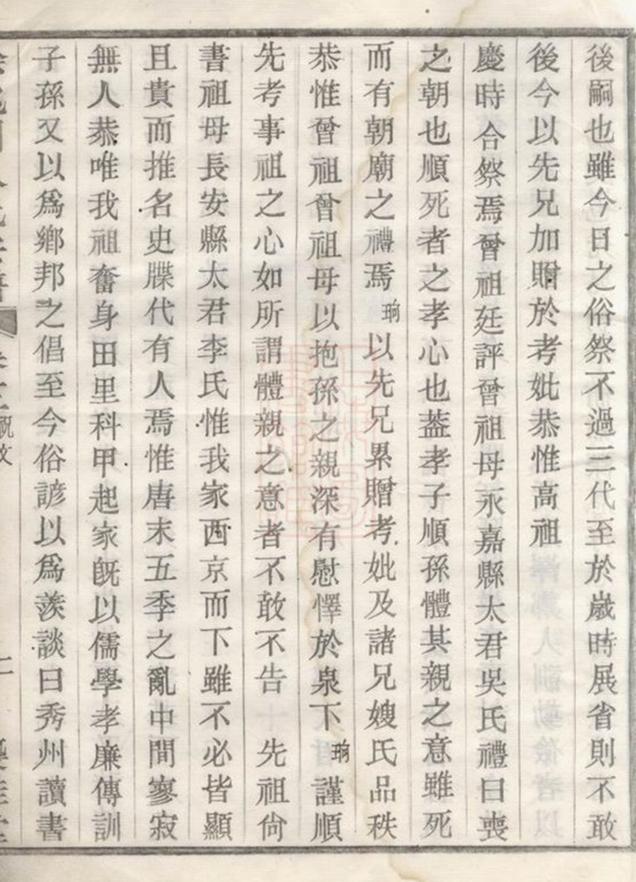 後嗣也雖今日之俗祭不過三代至於歲時展省則不敢
後今以先兄加贈於考妣恭惟高祖
慶時合祭焉曾祖廷評曾祖母永嘉縣太君吳氏禮曰喪
之朝也順死者之孝心也蓋孝子順孫體其親之意雖死
而有朝廟之禮焉珦以先兄累贈考妣及諸兄嫂氏品秩
恭惟曾祖曾祖母以抱孫之親深有慰懌於泉下珦謹順
先考事祖之心如所謂體親之意者不敢不告 先祖尙
書祖母長安縣太君李氏惟我家西京而下雖不必皆顯
且貴而推名史牒代有人焉惟唐末五季之亂中間寥寂
無人恭唯我祖奮身田里科甲起家旣以儒學孝廉傳訓
子孫又以爲鄉邦之倡至今俗諺以爲羨談曰秀州讀書
祝文
二